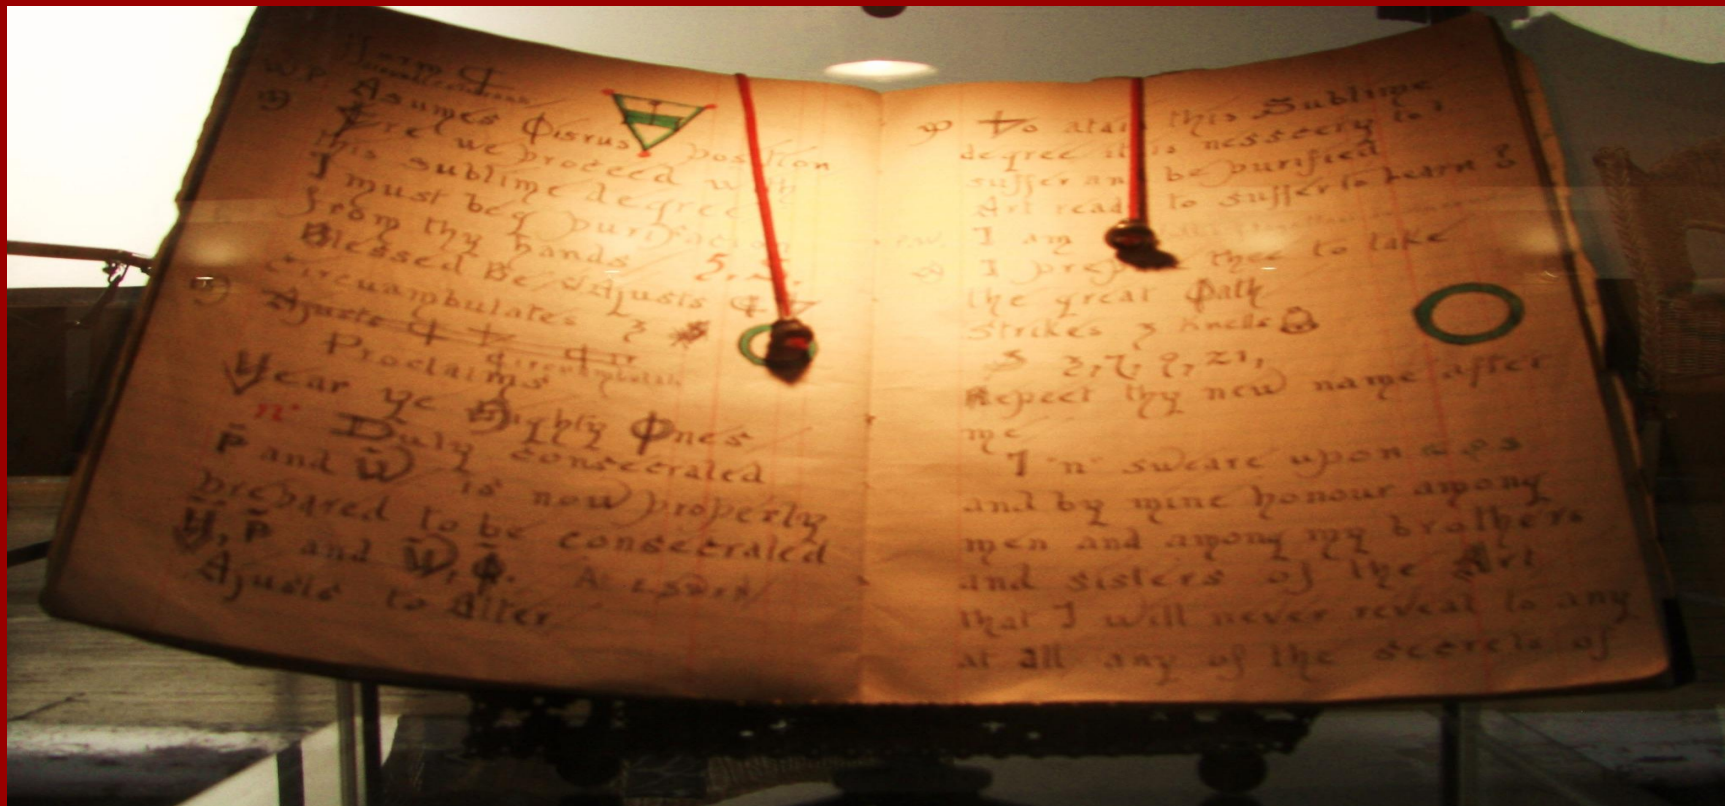 Form
Asumes Osrus position
Ere we proceed with
this sublime degree
I must beg purifacion
from thy hands
Blessed Be Ajusts
Circuambulates 3
Ajusts
Proclaims
Hear ye Mighty Ones
"n" Duly consecrated
P and W is now properly
prepared to be consecrated
H, P and W, O.
Ajusts to Alter
To atain this Sublime
degree it is nessecery to
suffer and be purified
Art ready to suffer to Learn
I am
I prepare thee to take
the great Oath
Strikes 3 knells
3, 7, 9, 21,
Repeet thy new name after
me
I "n" sweare upon
and by mine honour among
men and among my brothers
and sisters of the Art
that I will never reveal to any
at all any of the secrets of